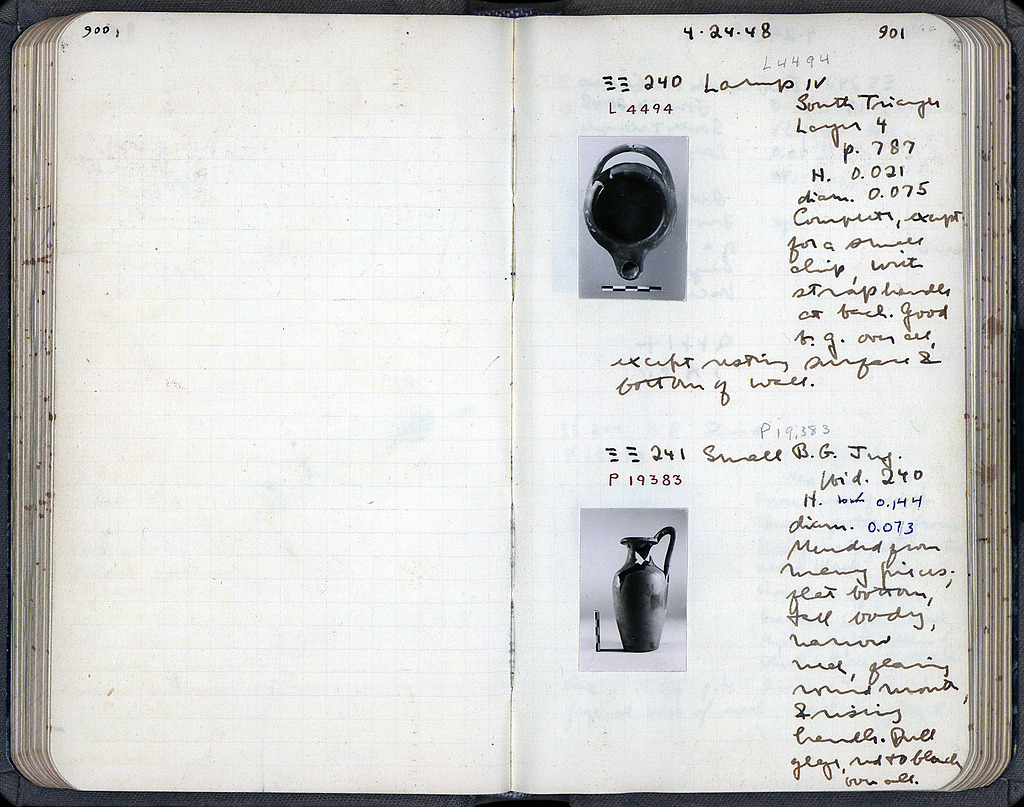 900,
4·24·48 901
L4494
ΞΞ 240 Lamp IV
L 4494
South Triangle
Layer 4
p. 787
H. 0.021
diam. 0.075
Complete, except
for a small
chip, with
strap handle
at back. Good
b. g. over all,
except resting surface &
bottom of wall.
P 19,383
ΞΞ 241 Small B.G. Jug.
P 19383
ibid. 240
H. 0.144
diam. 0.073
Mended from
many pieces.
flat bottom,
tall body,
narrow
neck, flaring
round mouth,
& rising
handle. Dull
glaze, red to black
over all.